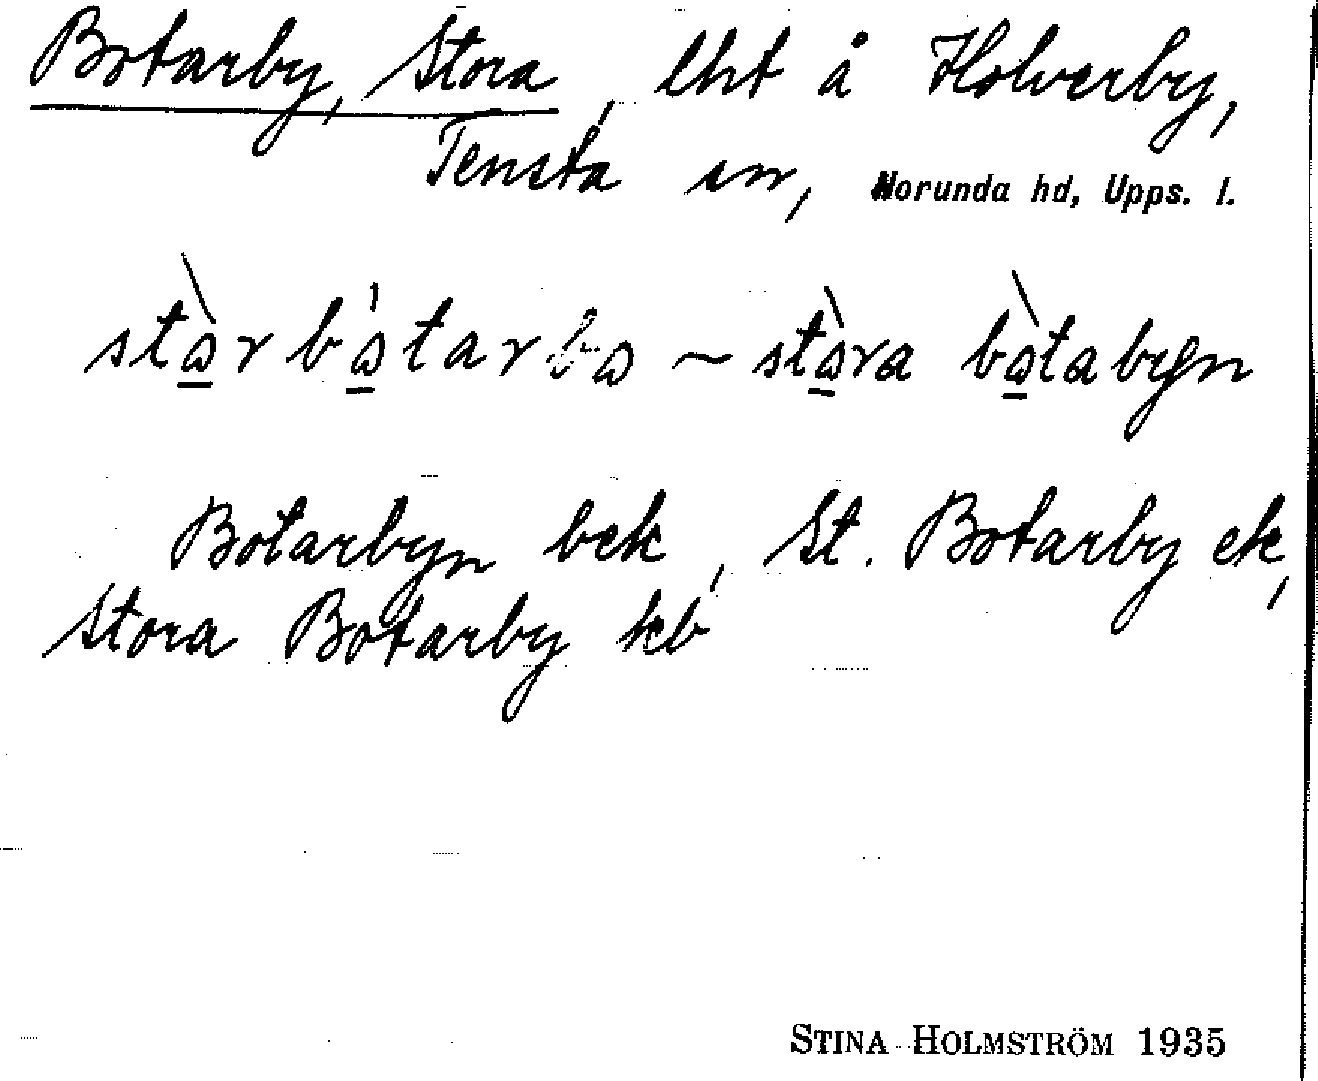 Botarby, Stora, lht å Holverby,
Tensta sn, Norunda hd, Upps. l.
stòr bótarbo ~ stòra bòtabyn
Botarbyn bek, St. Botarby ek,
Stora Botarby kb
STINA HOLMSTRÖM 1935